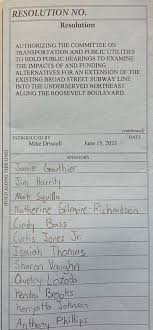 RESOLUTION NO.
Resolution
AUTHORIZING THE COMMITTEE ON
TRANSPORTATION AND PUBLIC UTILITIES
TO HOLD PUBLIC HEARINGS TO EXAMINE
THE IMPACTS OF AND FUNDING
ALTERNATIVES FOR AN EXTENSION OF THE
EXISTING BROAD STREET SUBWAY LINE
INTO THE UNDERSERVED NORTHEAST
ALONG THE ROOSEVELT BOULEVARD.
(continued)
INTRODUCED BY DATE
Mike Driscoll June 15, 2023
SPONSORS
Jamie Gauthier
Jim Harrity
Mark Squilla
Katherine Gilmore-Richardson
Cindy Bass
Curtis Jones Jr.
Isaiah Thomas
Sharon Vaughn
Quetcy Lozada
Kendra Brooks
Kenyatta Johnson
Anthony Phillips